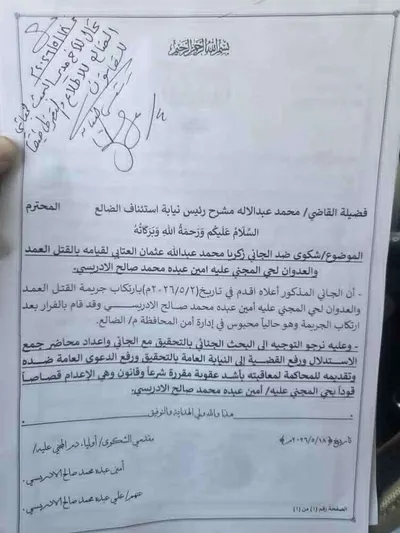 بسم الله الرحمن الرحيم
فضيلة القاضي/ محمد عبدالاله مشرح رئيس نيابة استئناف الضالع المحترم
السَّلَامُ عَلَيْكُم وَرَحْمَةُ اللهِ وَبَرَكَاتُهُ
الموضوع/ شكوى ضد الجاني زكريا محمد عبدالله عثمان العتابي لقيامه بالقتل العمد
والعدوان لحي المجني عليه امين عبده محمد صالح الادريسي.
- أن الجاني المذكور أعلاه اقدم في تاريخ(٢٠٢٦/٥/٢م)بارتكاب جريمة القتل العمد
والعدوان لحي المجني عليه أمين عبده محمد صالح الادريسـي وقد قام بالفرار بعد
ارتكاب الجريمة وهو حالياً محبوس في إدارة أمن المحافظة م/ الضالع.
- وعليه نرجو التوجيه الى البحث الجنائي بالتحقيق مع الجاني واعداد محاضر جمع
الاستدلال ورفع القضية إلى النيابة العامة بالتحقيق ورفع الدعوى العامة ضده
وتقديمه للمحاكمة لمعاقبته بأشد عقوبة مقررة شرعاً وقانون وهي الإعدام قصاصاً
قوداً بحي المجني عليه/ أمين عبده محمد صالح الادريسي.
هذا والله ولي الهداية والتوفيق
تاريخ (٢٠٢٦/٥/١٨م)
مقدمي الشكوى/ أولياء دم المجني عليه/
أمين عبده محمد صالح الادريسي.
عنهم/ علي عبده محمد صالح الادريسي.
الصفحة رقم (١) من (١)